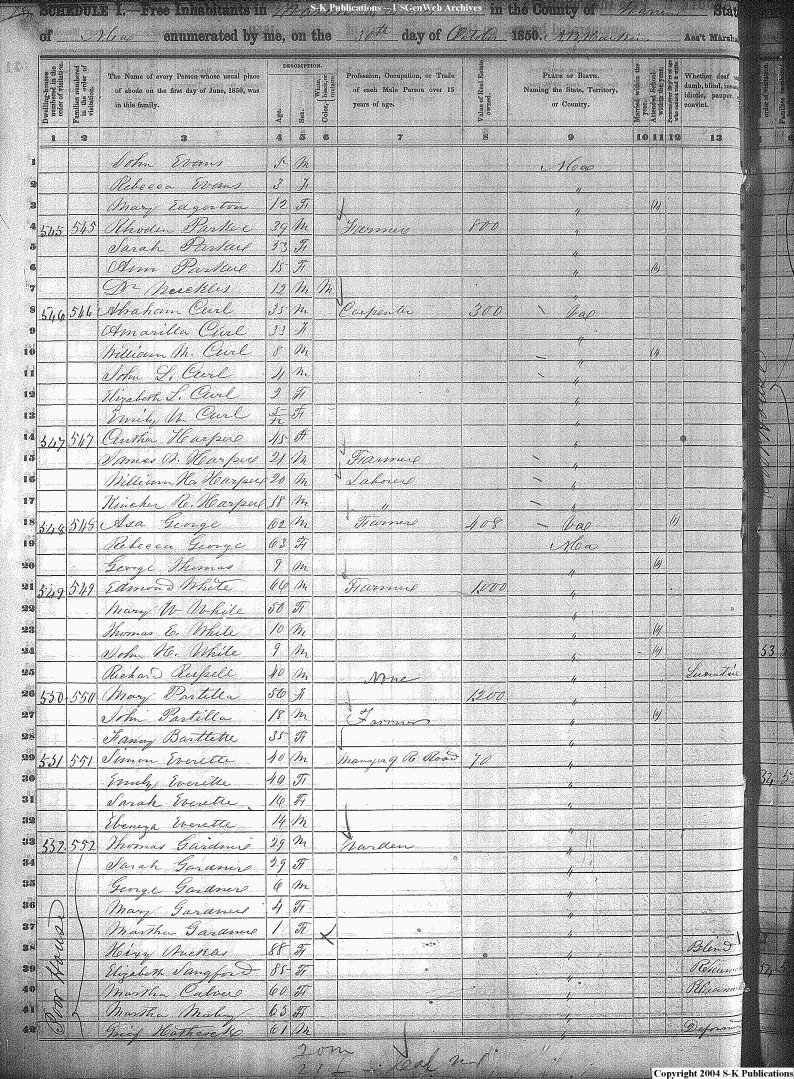 S-K Publications – USGenWeb Archives
SCHEDULE I.—Free Inhabitants in in the County of State
of enumerated by me, on the 30th day of October 1850. Ass't Marshal
DESCRIPTION.
Dwelling-houses numbered in the order of visitation.
Families numbered in the order of visitation.
The Name of every Person whose usual place of abode on the first day of June, 1850, was in this family.
Age.
Sex.
Color
Profession, Occupation, or Trade of each Male Person over 15 years of age.
Value of Real Estate owned.
PLACE OF BIRTH. Naming the State, Territory, or Country.
Married within the year.
Attended School within the year.
Whether deaf and dumb, blind, insane, idiotic, pauper, or convict.
1 2 3 4 5 6 7 8 9 10 11 12 13
1 John Evans 5 M
2 Rebecca Evans 3 F "
3 Mary Edgerton 12 F " (1)
4 545 545 Rhoden Parker 39 M Farmer 800 "
5 Sarah Parker 33 F "
6 Ann Parker 15 F " (1)
7 12 M M "
8 546 546 Abraham Curl 35 M Carpenter 300
9 Amarilla Curl 33 F "
10 William M. Curl 8 M " (1)
11 John L. Curl 4 M "
12 Elizabeth L. Curl 2 F "
13 Emily Curl F "
14 547 547 Harper 45 F "
15 James Harper 21 M Farmer "
16 William H. Harper 20 M Laborer "
17 Kincher R. Harper 18 M " "
18 548 548 Asa George 62 M Farmer 408 (1)
19 Rebecca George 63 F
20 George Thomas 9 M " (1)
21 549 549 Edmond White 66 M Farmer 1000 "
22 Mary W White 50 F "
23 Thomas E. White 10 M " (1)
24 John H. White 9 M " (1)
25 Richard Russell 40 M None " Lunatic
26 550 550 Mary Partilla 56 F 1200 "
27 John Partilla 18 M Farmer " (1)
28 Fanny Bartlette 35 F "
29 551 551 Simon Everette 40 M Manager of R. Road 70 "
30 Emily Everette 49 F "
31 Sarah Everette 16 F "
32 Ebeneza Everette 14 M "
33 552 552 Thomas Gardner 29 M Warden "
34 Sarah Gardner 29 F "
35 George Gardner 6 M "
36 Mary Gardner 4 F "
37 Martha Gardner 1 F "
38 88 F " Blind
39 Elizabeth 85 F "
40 Martha Culver 60 F "
41 Martha 63 F "
42 Hathcock 61 M "
Poor House
20 m
Copyright 2004 S-K Publications